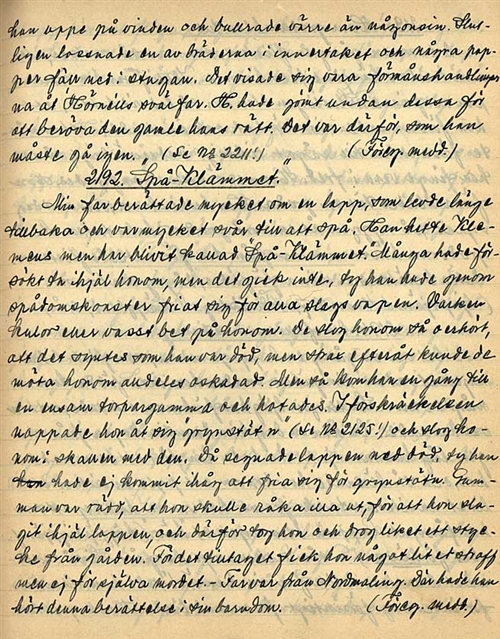 han uppe på vinden och bullrade värre än någonsin. Slut-
ligen lossnade en av bräderna i innertaket och några pap-
per föll ned i stugan. Det visade sig vara förmånshandlingar-
na åt Hörnélls svärfar. H. hade gömt undan dessa för
att beröva den gamle hans rätt. Det var därför, som han
måste gå igen." (Se № 2211!) (Föreg. medd.)
2192. Spå-Klämmet."
Min far berättade mycket om en lapp, som levde länge
tillbaka och var mycket svår till att spå. Han hette Kle-
mens men har blivit kallad "Spå-Klämmet". Många hade för-
sökt ta ihjäl honom, men det gick inte, ty han hade genom
spådomskonster friat sig för alla slags vapen. Varken
kulor eller vasst bet på honom. De slog honom så oerhört,
att det syntes som han var död, men strax efteråt kunde de
möta honom alldeles oskadad. Men så kom han en gång till
en ensam torpargumma och hotades. I förskräckelsen
nappade hon åt sig "grynstöt'n" (se № 2125!) och slog ho-
nom i skallen med den. Då segnade lappen ned död, ty han
hade ej kommit ihåg att fria sig för grynstöt'n. Gum-
man var rädd, att hon skulle råka illa ut, för att hon sla-
git ihjäl lappen, och därför tog hon och drog liket ett styc-
ke från gården. För det tilltaget fick hon något litet straff
men ej för själva mordet. – Far var från Nordmaling. Där hade han
hört denna berättelse i sin barndom. (Föreg. medd.)